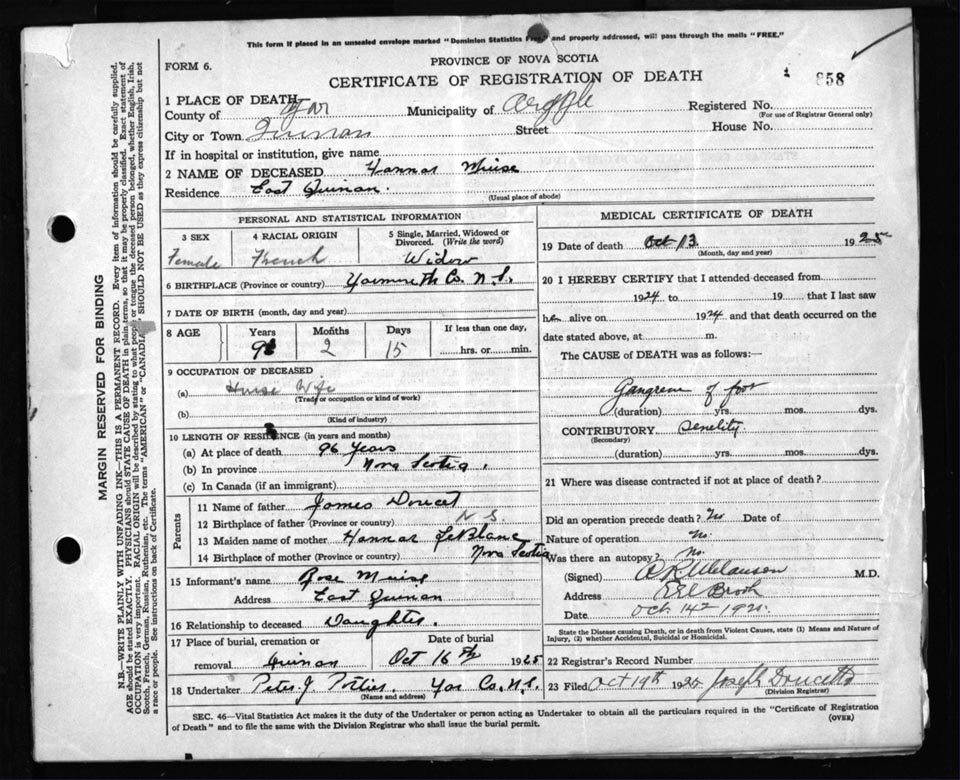 This form if placed in an unsealed envelope marked "Dominion Statistics Free," and properly addressed, will pass through the mails "FREE."
FORM 6.
PROVINCE OF NOVA SCOTIA
CERTIFICATE OF REGISTRATION OF DEATH
858
1 PLACE OF DEATH—
County of Yar Municipality of Argyle Registered No.
(For use of Registrar General only)
City or Town Quinan Street House No.
If in hospital or institution, give name
2 NAME OF DECEASED Hannar Muise
Residence East Quinan.
(Usual place of abode)
PERSONAL AND STATISTICAL INFORMATION
3 SEX
Female
4 RACIAL ORIGIN
French
5 Single, Married, Widowed or Divorced. (Write the word)
Widow
6 BIRTHPLACE (Province or country) Yarmouth Co. N.S.
7 DATE OF BIRTH (month, day and year)
8 AGE
Years Months Days If less than one day,
2 15 hrs. or min.
9 OCCUPATION OF DECEASED
(a) House Wife
(Trade or occupation or kind of work)
(b)
(Kind of industry)
10 LENGTH OF RESIDENCE (in years and months)
(a) At place of death 96 Years
(b) In province Nova Scotia.
(c) In Canada (if an immigrant)
Parents
11 Name of father James Doucet
12 Birthplace of father (Province or country) N S.
13 Maiden name of mother Hannar LeBlanc
14 Birthplace of mother (Province or country) Nova Scotia
15 Informant's name Rose Muise
Address East Quinan
16 Relationship to deceased Daughter.
17 Place of burial, cremation or removal Quinan
Date of burial
Oct 16th 1925
18 Undertaker Peter J. Potier. Yar Co. N.S.
(Name and address)
MEDICAL CERTIFICATE OF DEATH
19 Date of death Oct 13 1925
(Month, day and year)
20 I HEREBY CERTIFY that I attended deceased from
1924 to 19 that I last saw
her alive on 1924 and that death occurred on the
date stated above, at m.
The CAUSE of DEATH was as follows:—
Gangrene of foot
(duration) yrs. mos. dys.
CONTRIBUTORY Senelity.
(Secondary)
(duration) yrs. mos. dys.
21 Where was disease contracted if not at place of death?
Did an operation precede death? No Date of
Nature of operation No.
Was there an autopsy? No.
(Signed) M.D.
Address Eel Brook
Date Oct 14th 192
State the Disease causing Death, or in death from Violent Causes, state (1) Means and Nature of Injury, (2) whether Accidental, Suicidal or Homicidal.
22 Registrar's Record Number
23 Filed Oct 19th 1925 Joseph Doucette
(Division Registrar)
SEC. 46—Vital Statistics Act makes it the duty of the Undertaker or person acting as Undertaker to obtain all the particulars required in the "Certificate of Registration of Death" and to file the same with the Division Registrar who shall issue the burial permit.
(OVER)
MARGIN RESERVED FOR BINDING
N.B.—WRITE PLAINLY WITH UNFADING INK—THIS IS A PERMANENT RECORD. Every item of information should be carefully supplied.
AGE should be stated EXACTLY. PHYSICIANS should STATE CAUSE OF DEATH in plain terms, so that it may be properly classified. Exact statement of
OCCUPATION is very important. RACIAL ORIGIN will be described by stating to what people or tongue the deceased person belonged, whether English, Irish,
Scotch, French, German, Russian, Ruthenian, etc. The terms "AMERICAN" or "CANADIAN" SHOULD NOT BE USED as they express citizenship but not
a race or people. See instructions on back of Certificate.